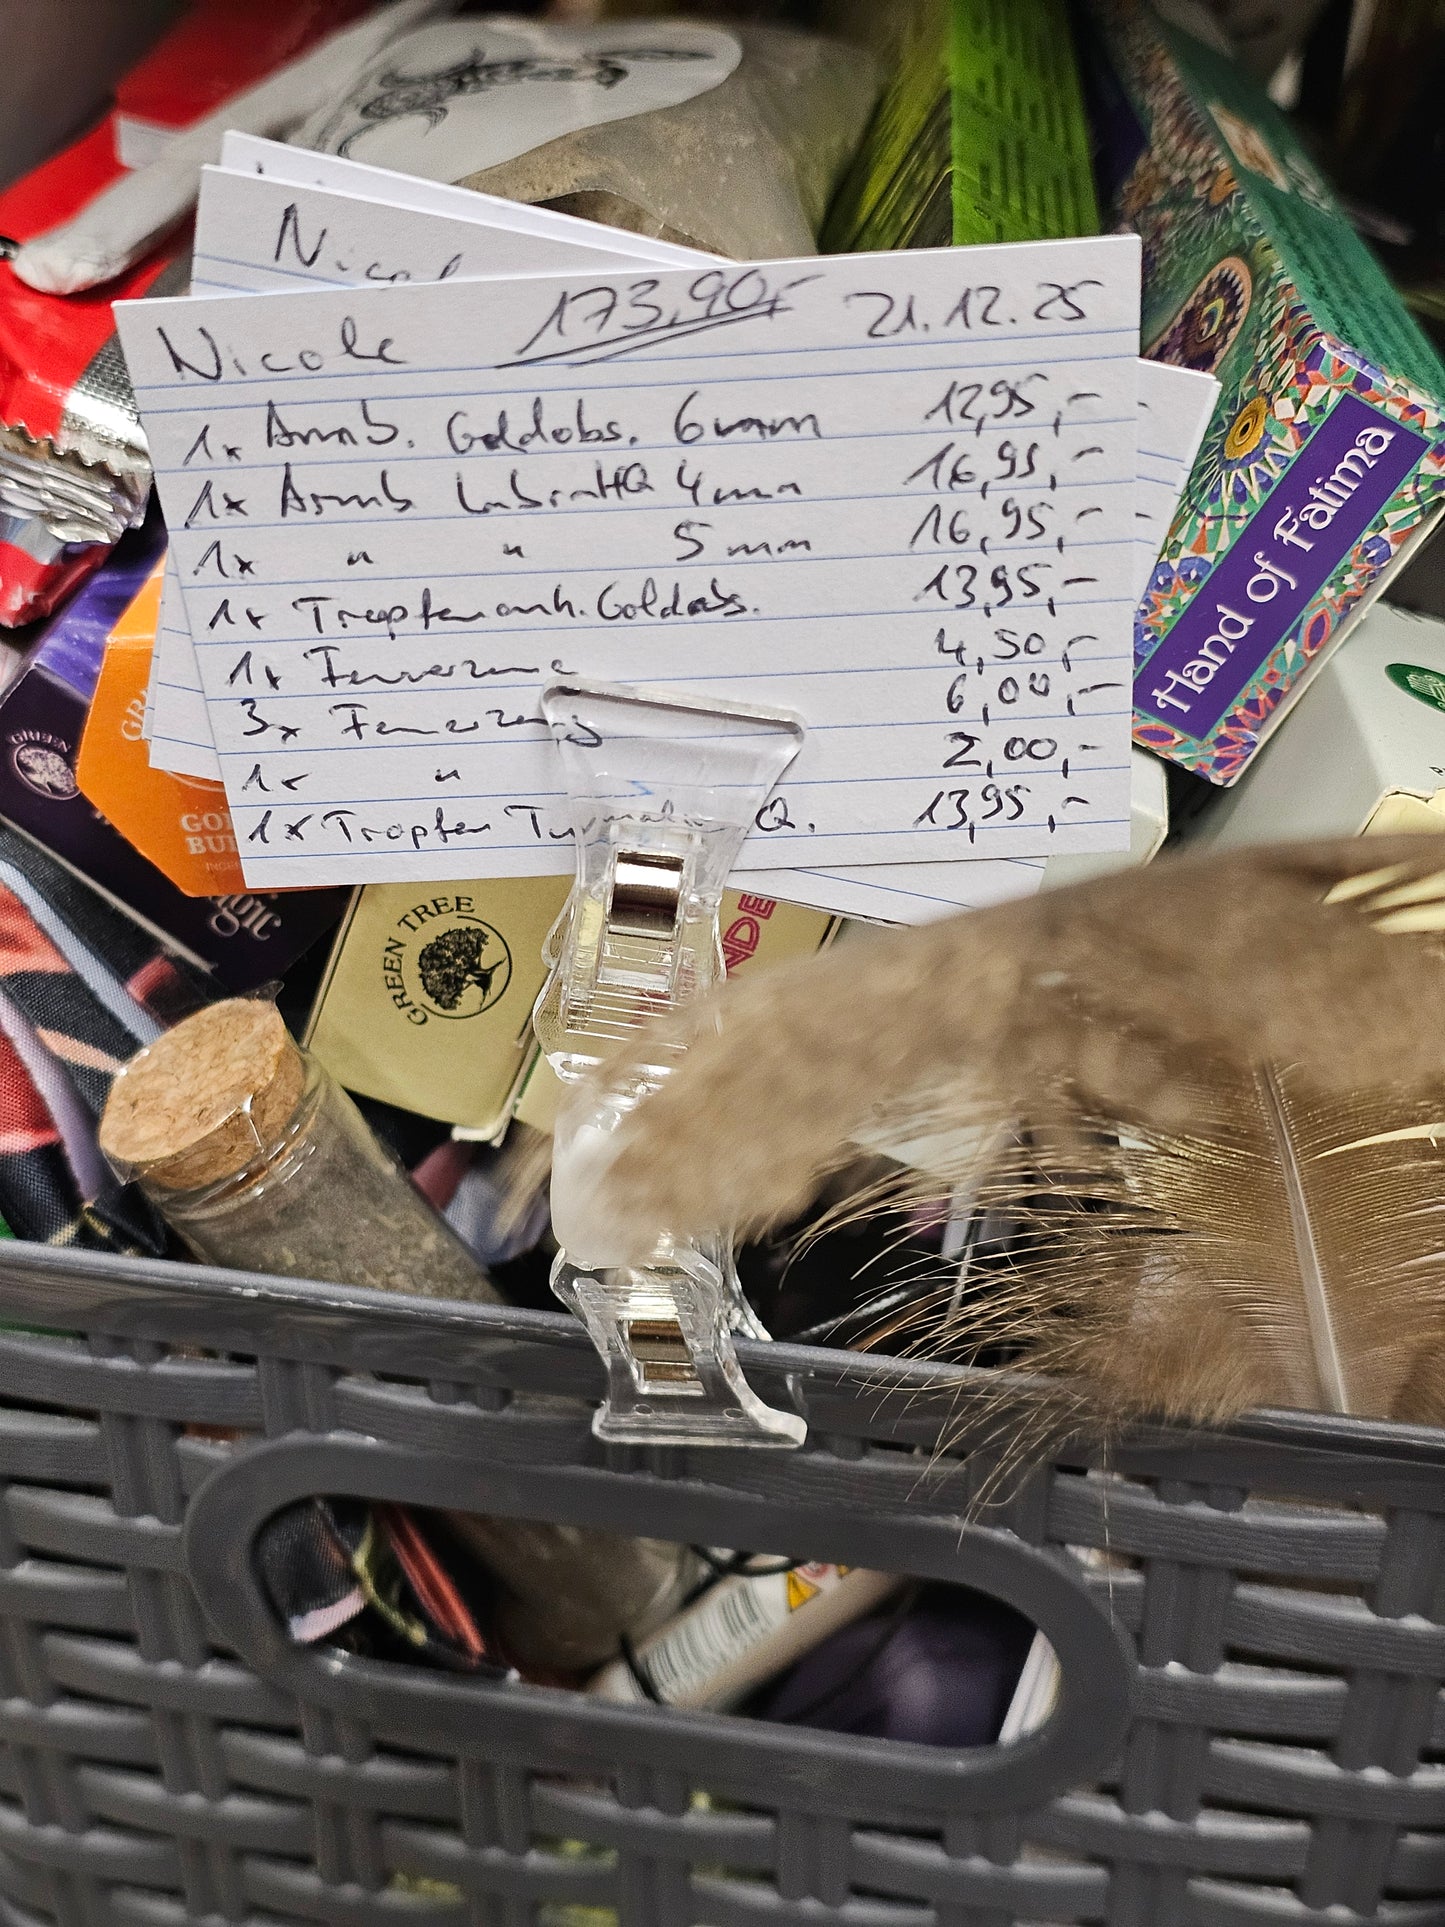 Nicol
Nicole 173,90,- 21.12.25
1x Armb. Goldobs. 6mm 12,95,-
1x Armb LabraHQ 4mm 16,95,-
1x " " 5mm 16,95,-
1x Tropfenanh. Goldobs. 13,95,-
1x Feuerzeug 4,50,-
3x Feuerzeug 6,00,-
1x " 2,00,-
1x Tropfen Turmalin Q. 13,95,-
Hand of Fatima
GREEN
GREEN TREE